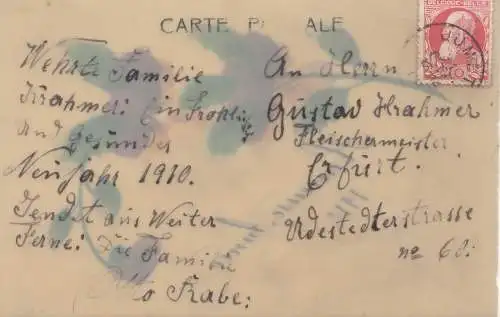 CARTE P ALE
BELGIQUE-BELGIË
Wehrte Familie
Krahmer! Ein Frohlig
und gesundes
Neujahr 1910.
Sendet aus Weiter
Ferne: Die Familie
Otto Rabe:
An Herrn
Gustav Krahmer
Fleischermeister
Erfurt.
Udestedterstrasse
no 60: